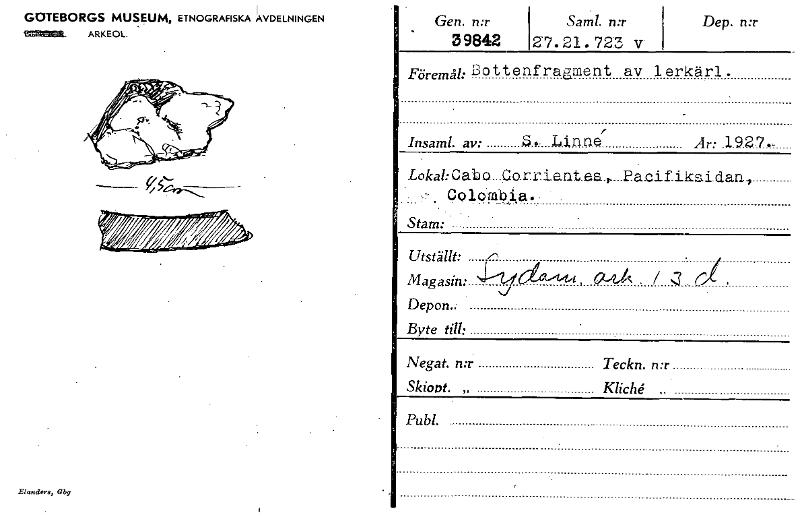 GÖTEBORGS MUSEUM, ETNOGRAFISKA AVDELNINGEN
ARKEOL.
4,5cm
Elanders, Gbg
Gen. n:r Saml. n:r Dep. n:r
39842 27.21.723 v
Föremål: Bottenfragment av lerkärl.
Insaml. av: S. Linné År: 1927.
Lokal: Cabo Corrientes, Pacifiksidan,
Colombia.
Stam:
Utställt:
Magasin: Sydam. ark. 13 d.
Depon.:
Byte till:
Negat. n:r Teckn. n:r
Skiopt. „ Kliché „
Publ.